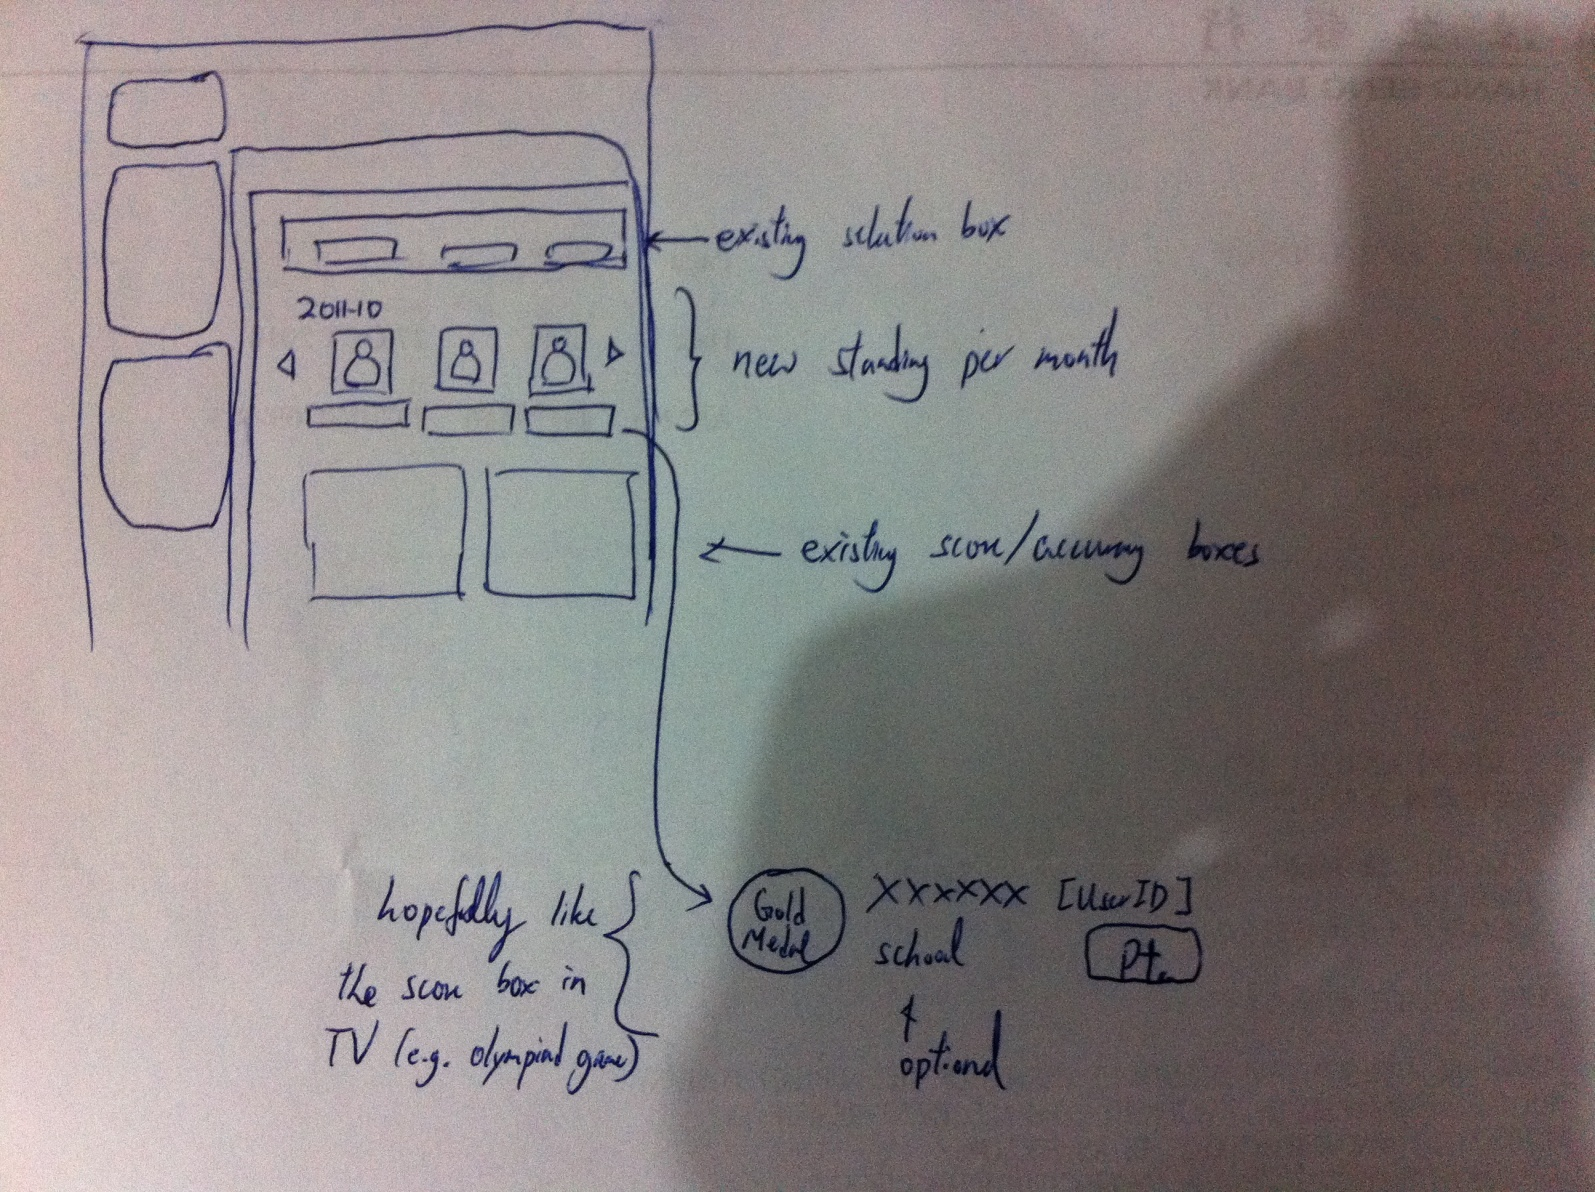 existing selection box
2011-10
new standing per month
existing score/accuracy boxes
hopefully like
the score box in
TV (e.g. olympiad game)
Gold
Medal
XXXXXX [UserID]
school
Pt.
optional
HANG SENG BANK